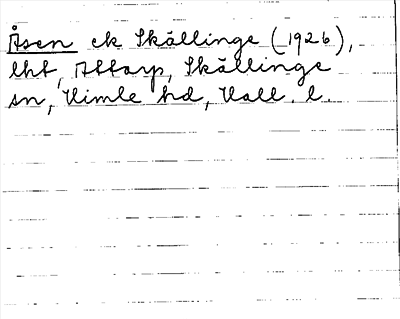 Åsen ek Skällinge (1926),
lht, Attarp, Skällinge
sn, Himle hd, Hall. l.